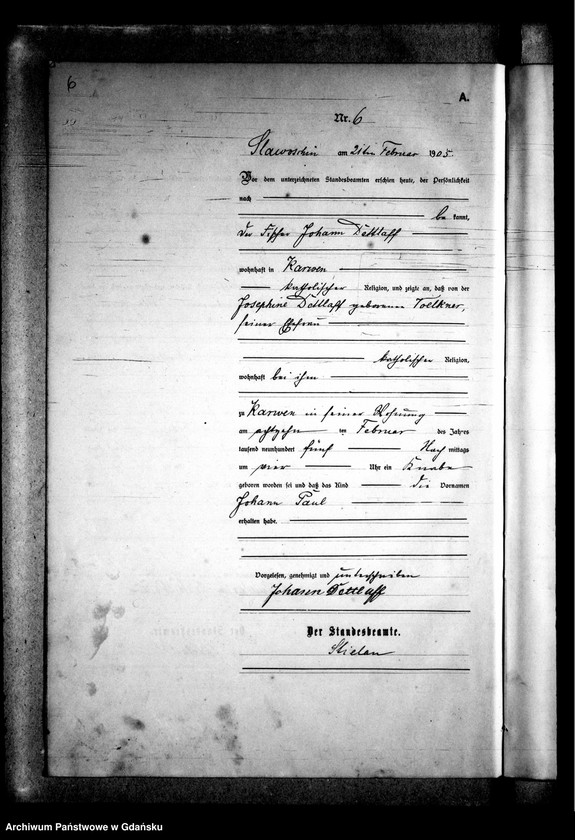 6
A.
Nr. 6
Slawoschin am 21ten Februar 1905.
Vor dem unterzeichneten Standesbeamten erschien heute, der Persönlichkeit
nach
be kannt,
der Fischer Johann Dettlaff
wohnhaft in Karwen
katholischer Religion, und zeigte an, daß von der
Josephine Dettlaff geborenen Voelkner,
seiner Ehefrau
katholischer Religion,
wohnhaft bei ihm
zu Karwen in seiner Wohnung
am achtzehn ten Februar des Jahres
tausend neunhundert fünf Nach mittags
um vier Uhr ein Knabe
geboren worden sei und daß das Kind die Vornamen
Johann Paul
erhalten habe.
Vorgelesen, genehmigt und unterschrieben
Johann Dettlaff
Der Standesbeamte.
Archiwum Państwowe w Gdańsku